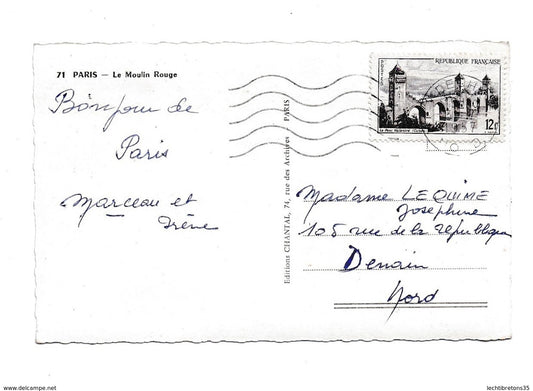 71 PARIS — Le Moulin Rouge
Bonjour de
Paris
Marceau et
Irène
Editions CHANTAL, 74, rue des Archives - PARIS
REPUBLIQUE FRANÇAISE
12F
Madame LEQUIME
Josephine
105 rue de la République
Denain
Nord
akpool-delcampe.net
lechtibretons35